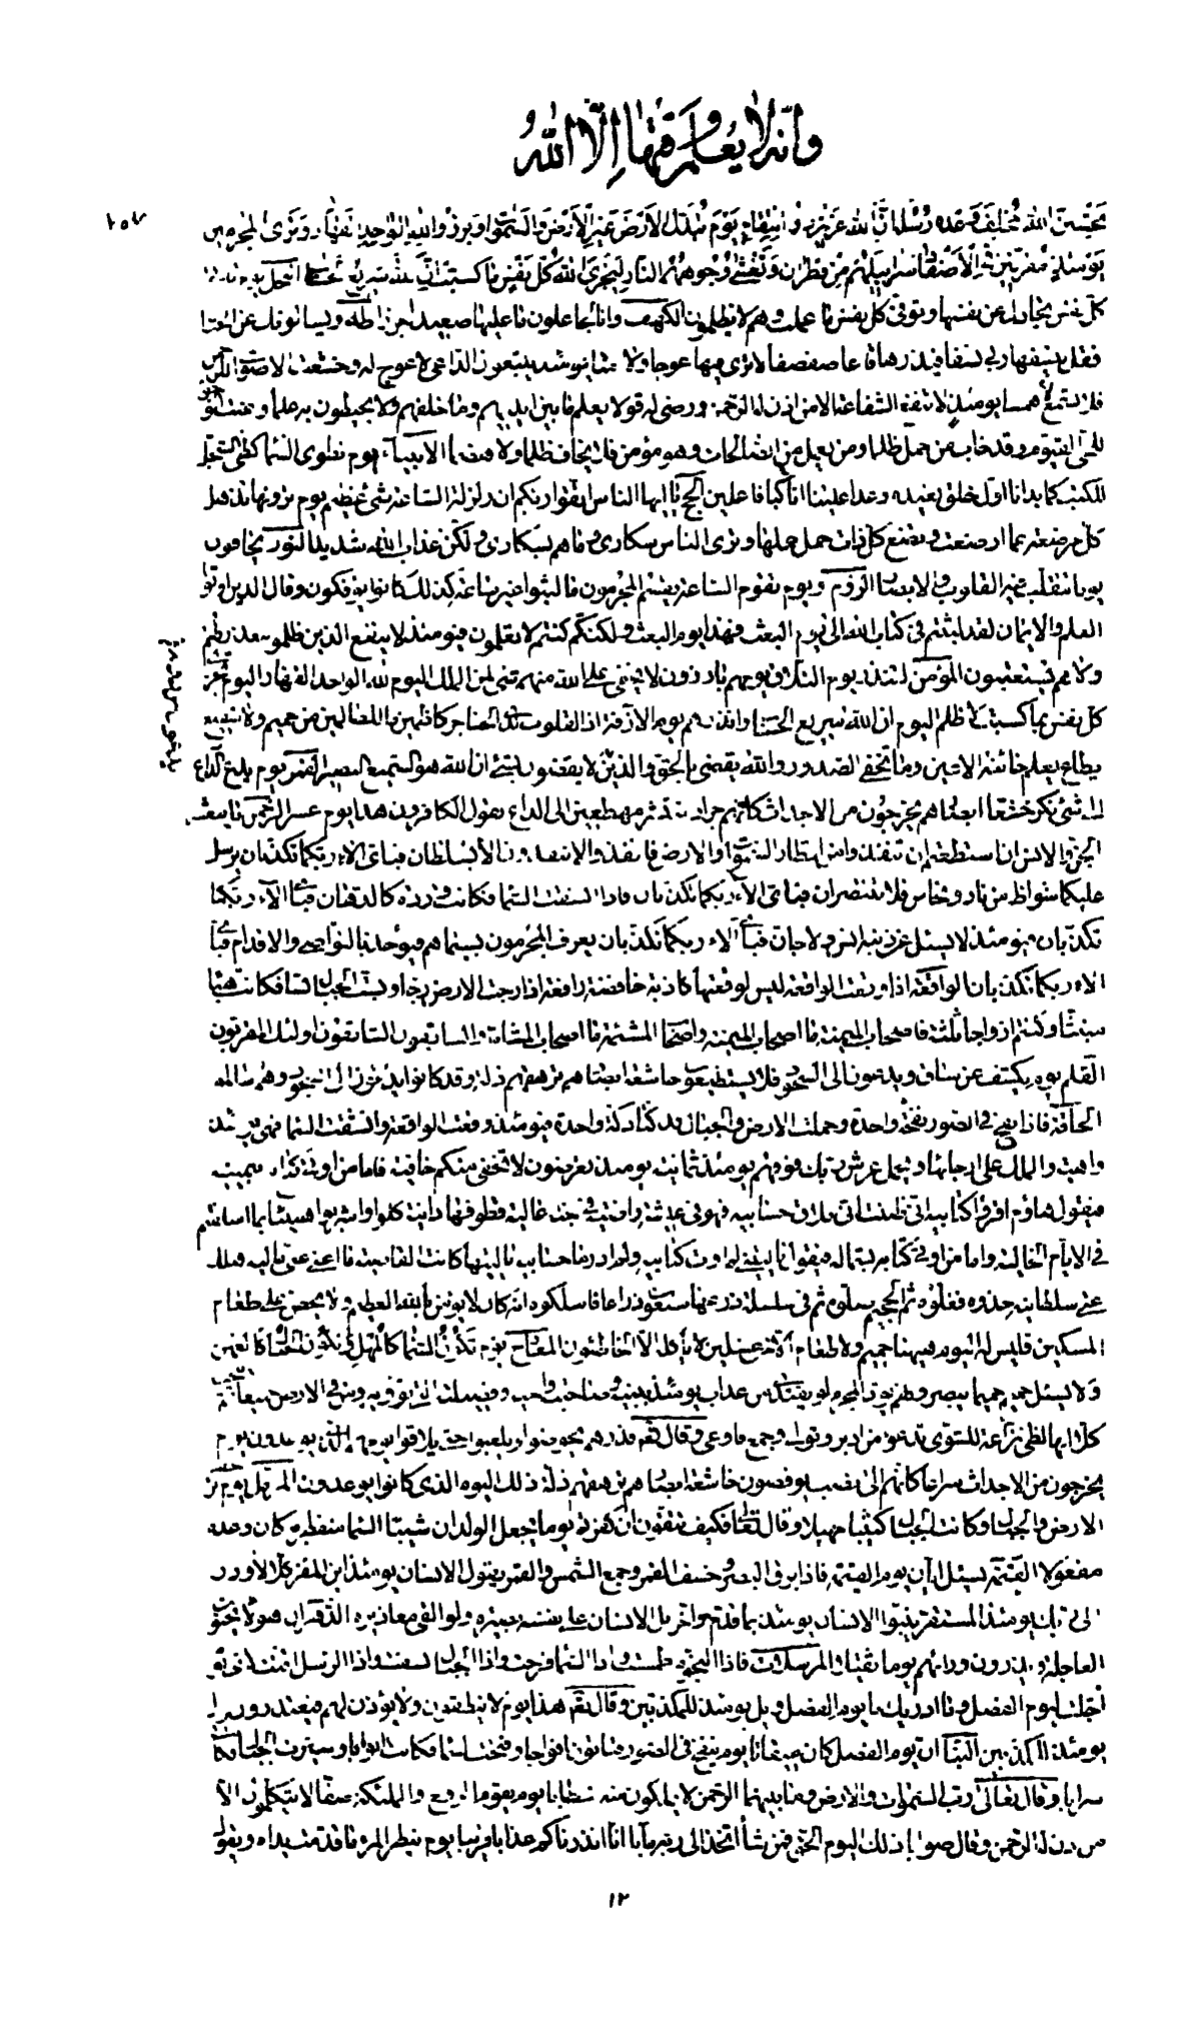 وانه لا يعلم وقتها إلا الله
تحسبن الله مخلف وعده رسله ان الله عزيز ذو انتقام يوم تبدل الارض غير الارض والسموات وبرزوا لله الواحد القهار وترى المجرمين
يومئذ مقرنين في الأصفاد سرابيلهم من قطران وتغشى وجوههم النار ليجزى الله كل نفس ما كسبت ان الله سريع النحل يوم تاتى
كل نفس تجادل عن نفسها وتوفى كل نفس ما عملت وهم لا يظلمون الكهف وانا لجاعلون ما عليها صعيدا جرزا طه ويسألونك عن الجبال
فقل ينسفها ربى نسفا فيذرها قاعا صفصفا لا ترى فيها عوجا ولا امتا يومئذ يتبعون الداعى لا عوج له وخشعت الاصوات للرحمن
فلا تسمع الا همسا يومئذ لا تنفع الشفاعة الا من اذن له الرحمن ورضى له قولا يعلم ما بين ايديهم وما خلفهم ولا يحيطون به علما وعنت الوجوه
للحى القيوم وقد خاب من حمل ظلما ومن يعمل من الصالحات وهو مؤمن فلا يخاف ظلما ولا هضما الانبياء يوم نطوى السماء كطى السجل
للكتب كما بدانا اول خلق نعيده وعدا علينا انا كنا فاعلين الحج يا ايها الناس اتقوا ربكم ان زلزلة الساعة شئ عظيم يوم ترونها تذهل
كل مرضعة عما ارضعت وتضع كل ذات حمل حملها وترى الناس سكارى وما هم بسكارى ولكن عذاب الله شديد النور يخافون
يوما تتقلب فيه القلوب والابصار الروم ويوم تقوم الساعة يقسم المجرمون ما لبثوا غير ساعة كذلك كانوا يؤفكون وقال الذين اوتوا
العلم والايمان لقد لبثتم في كتاب الله الى يوم البعث فهذا يوم البعث ولكنكم كنتم لا تعلمون فيومئذ لا ينفع الذين ظلموا معذرتهم
ولا هم يستعتبون المؤمن لتنذر يوم التلاق يوم هم بارزون لا يخفى على الله منهم شئ لمن الملك اليوم لله الواحد القهار اليوم تجزى
كل نفس بما كسبت لا ظلم اليوم ان الله سريع الحساب وانذرهم يوم الازفة اذ القلوب لدى الحناجر كاظمين ما للظالمين من حميم ولا شفيع
يطاع يعلم خائنة الاعين وما تخفى الصدور والله يقضى بالحق والذين لا يقضون بشئ ان الله هو السميع البصير القمر يوم يدع الداع
الى شئ نكر خشعا ابصارهم يخرجون من الاجداث كانهم جراد منتشر مهطعين الى الداع يقول الكافرون هذا يوم عسر الرحمن يا معشر
الجن والانس ان استطعتم ان تنفذوا من اقطار السموات والارض فانفذوا لا تنفذون الا بسلطان فباى الاء ربكما تكذبان يرسل
عليكما شواظ من نار ونحاس فلا تنتصران فباى الاء ربكما تكذبان فاذا انشقت السماء فكانت وردة كالدهان فباى الآء ربكما
تكذبان فيومئذ لا يسئل عن ذنبه انس ولا جان فباى الاء ربكما تكذبان يعرف المجرمون بسيماهم فيؤخذ بالنواصى والاقدام فباى
الاء ربكما تكذبان الواقعة اذا وقعت الواقعة ليس لوقعتها كاذبة خافضة رافعة اذا رجت الارض رجا وبست الجبال بسا فكانت هباء
منبثا وكنتم ازواجا ثلثة فاصحاب الميمنة ما اصحاب الميمنة واصحاب المشئمة ما اصحاب المشئمة والسابقون السابقون اولئك المقربون
القلم يوم يكشف عن ساق ويدعون الى السجود فلا يستطيعون خاشعة ابصارهم ترهقهم ذلة وقد كانوا يدعون الى السجود وهم سالمون
الحاقة فاذا نفخ في الصور نفخة واحدة وحملت الارض والجبال فدكتا دكة واحدة فيومئذ وقعت الواقعة وانشقت السماء فهى يومئذ
واهية والملك على ارجائها ويحمل عرش ربك فوقهم يومئذ ثمانية يومئذ تعرضون لا تخفى منكم خافية فاما من اوتى كتابه بيمينه
فيقول هاؤم اقرؤا كتابيه انى ظننت انى ملاق حسابيه فهو في عيشة راضية في جنة عالية قطوفها دانية كلوا واشربوا هنيئا بما اسلفتم
في الايام الخالية واما من اوتى كتابه بشماله فيقول يا ليتنى لم اوت كتابيه ولم ادر ما حسابيه يا ليتها كانت القاضية ما اغنى عنى ماليه هلك
عنى سلطانيه خذوه فغلوه ثم الجحيم صلوه ثم في سلسلة ذرعها سبعون ذراعا فاسلكوه انه كان لا يؤمن بالله العظيم ولا يحض على طعام
المسكين فليس له اليوم هيهنا حميم ولا طعام الا من غسلين لا ياكله الا الخاطئون المعارج يوم تكون السماء كالمهل وتكون الجبال كالعهن
ولا يسئل حميم حميما يبصرونهم يود المجرم لو يفتدى من عذاب يومئذ ببنيه وصاحبته واخيه وفصيلته التى تؤويه ومن في الارض جميعا ثم ينجيه
كلا انها لظى نزاعة للشوى تدعو من ادبر وتولى وجمع فاوعى وقال تعالى فذرهم يخوضوا ويلعبوا حتى يلاقوا يومهم الذى يوعدون يوم
يخرجون من الاجداث سراعا كانهم الى نصب يوفضون خاشعة ابصارهم ترهقهم ذلة ذلك اليوم الذى كانوا يوعدون المزمل يوم ترجف
الارض والجبال وكانت الجبال كثيبا مهيلا وقال تعالى فكيف تتقون ان كفرتم يوما يجعل الولدان شيبا السماء منفطر به كان وعده
مفعولا القيمة يسئل ايان يوم القيمة فاذا برق البصر وخسف القمر وجمع الشمس والقمر يقول الانسان يومئذ اين المفر كلا لا وزر
الى ربك يومئذ المستقر ينبؤا الانسان يومئذ بما قدم واخر بل الانسان على نفسه بصيرة ولو القى معاذيره هؤلاء يحبون
العاجلة ويذرون ورائهم يوما ثقيلا المرسلات فاذا النجوم طمست واذا السماء فرجت واذا الجبال نسفت واذا الرسل اقتت لاى يوم
اجلت ليوم الفصل وما ادريك ما يوم الفصل ويل يومئذ للمكذبين وقال تعالى هذا يوم لا ينطقون ولا يؤذن لهم فيعتذرون ويل
يومئذ للمكذبين النبأ ان يوم الفصل كان ميقاتا يوم ينفخ في الصور فتاتون افواجا وفتحت السماء فكانت ابوابا وسيرت الجبال فكانت
سرابا وقال تعالى رب السموات والارض وما بينهما الرحمن لا يملكون منه خطابا يوم يقوم الروح والملئكة صفا لا يتكلمون الا
من اذن له الرحمن وقال صوابا ذلك اليوم الحق فمن شاء اتخذ الى ربه مآبا انا انذرناكم عذابا قريبا يوم ينظر المرء ما قدمت يداه ويقول
١٢